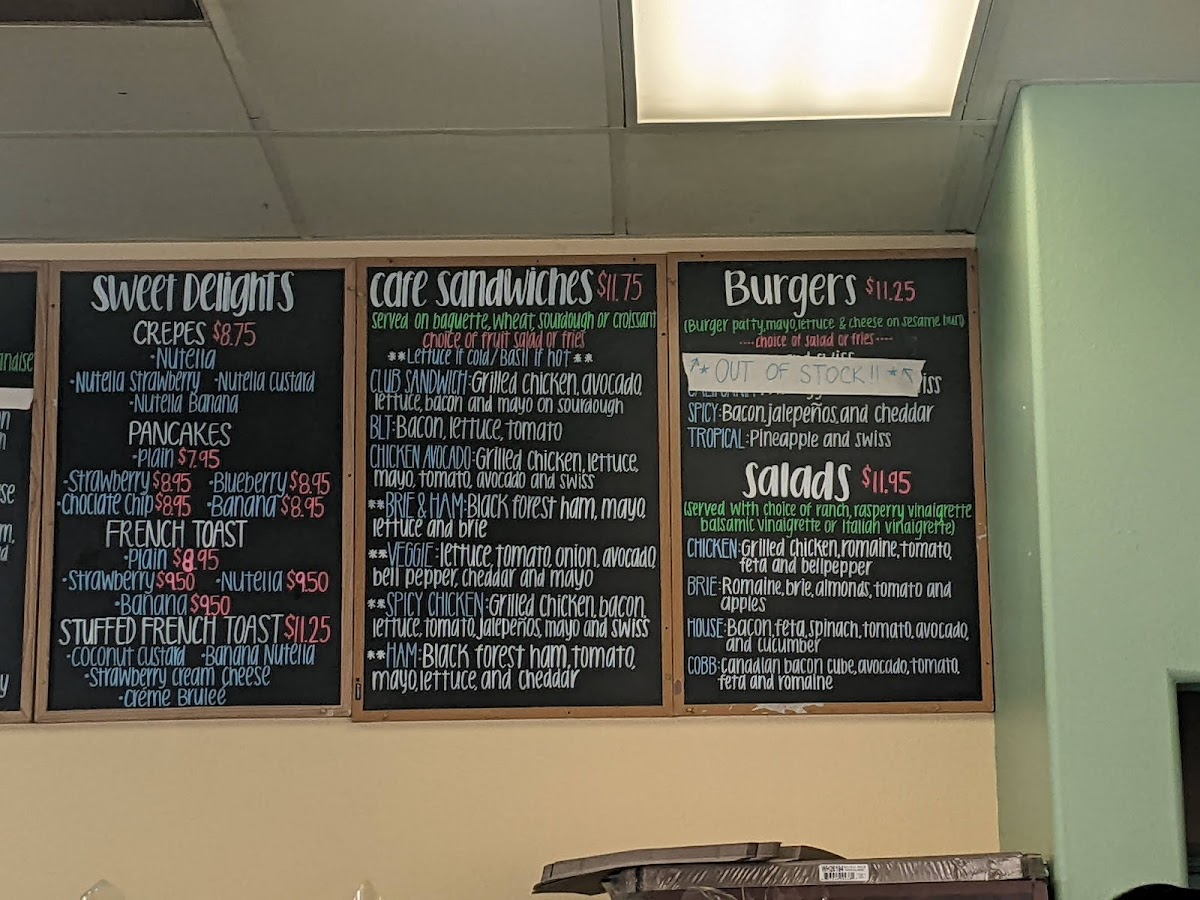 Sweet Delights
CREPES $8.75
•Nutella
•Nutella Strawberry •Nutella custard
•Nutella Banana
PANCAKES
•Plain $7.95
•Strawberry $8.95 •Blueberry $8.95
•choclate chip $8.95 •Banana $8.95
FRENCH TOAST
•Plain $8.95
•Strawberry $9.50 •Nutella $9.50
•Banana $9.50
STUFFED FRENCH TOAST $11.25
•Coconut custard •Banana Nutella
•Strawberry cream cheese
•créme Brulee
cafe Sandwiches $11.75
served on baguette, wheat, sourdough or croissant
choice of fruit salad or fries
**Lettuce if cold/Basil if hot**
CLUB SANDWICH: Grilled chicken, avocado,
lettuce, bacon and mayo on sourdough
BLT: Bacon, lettuce, tomato
CHICKEN AVOCADO: Grilled chicken, lettuce,
mayo, tomato, avocado and swiss
**BRIE & HAM: Black forest ham, mayo,
lettuce and brie
**VEGGIE: lettuce, tomato, onion, avocado,
bell pepper, cheddar and mayo
**SPICY CHICKEN: Grilled chicken, bacon,
lettuce, tomato, jalepeños, mayo and swiss
**HAM: Black forest ham, tomato,
mayo, lettuce, and cheddar
Burgers $11.25
(Burger patty, mayo, lettuce & cheese on sesame bun)
----choice of salad or fries----
OUT OF STOCK!!
SPICY: Bacon, jalepeños, and cheddar
TROPICAL: Pineapple and swiss
Salads $11.95
(served with choice of ranch, rasperry vinaigrette
balsamic vinaigrette or Italian vinaigrette)
CHICKEN: Grilled chicken, romaine, tomato,
feta and bellpepper
BRIE: Romaine, brie, almonds, tomato and
apples
HOUSE: Bacon, feta, spinach, tomato, avocado,
and cucumber
COBB: Canadian bacon cube, avocado, tomato,
feta and romaine